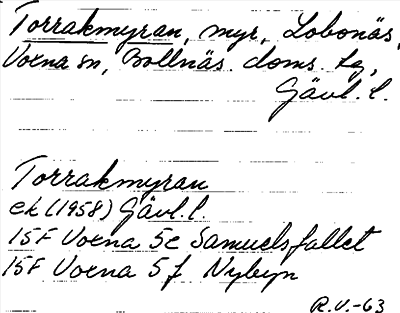 Torrakmyran, myr, Lobonäs,
Voxna sn, Bollnäs doms. lg,
Gävl. l.
Torrakmyran
ek (1958) Gävl. l.
15F Voxna 5e Samuelsfallet
15F Voxna 5f Nybyn
R.V.-63